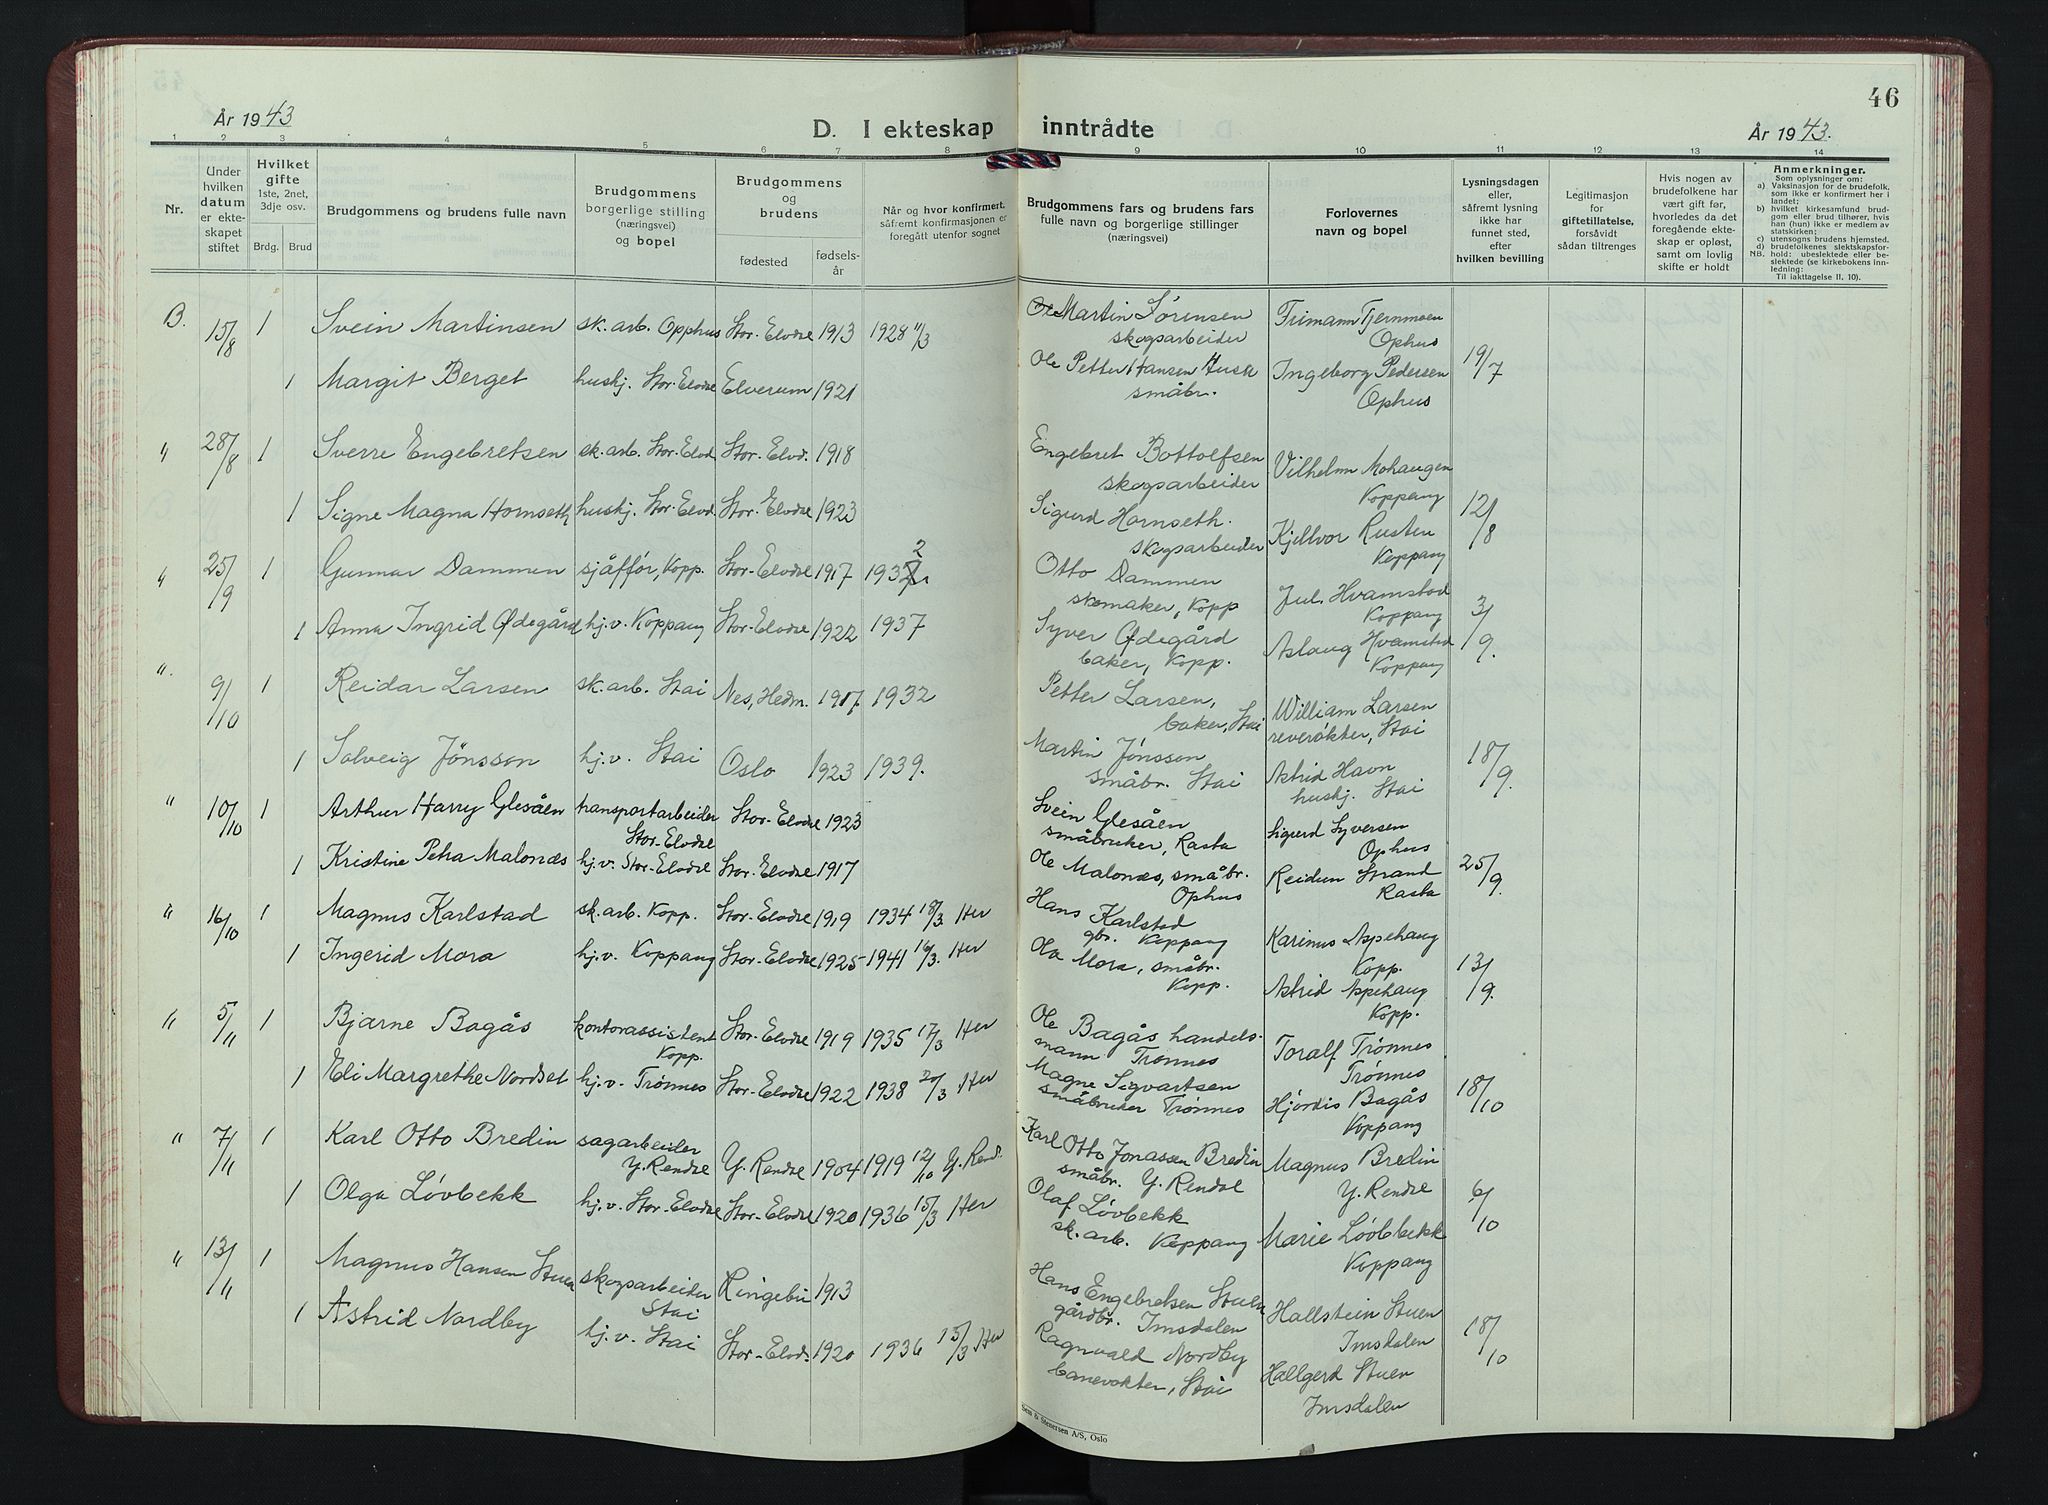 46
År 1943
D. I ekteskap inntrådte
År 1943.
1 2 3 4 5 6 7 8 9 10 11 12 13 14
Nr.
Under hvilken datum er ekteskapet stiftet
Hvilket gifte
1ste, 2net, 3dje osv.
Brdg. Brud
Brudgommens og brudens fulle navn
Brudgommens borgerlige stilling (næringsvei) og bopel
Brudgommens og brudens
fødested
fødselsår
Når og hvor konfirmert, såfremt konfirmasjonen er foregått utenfor sognet
Brudgommens fars og brudens fars fulle navn og borgerlige stillinger (næringsvei)
Forlovernes navn og bopel
Lysningsdagen eller, såfremt lysning ikke har funnet sted, efter hvilken bevilling
Legitimasjon for giftetillatelse, forsåvidt sådan tiltrenges
Hvis nogen av brudefolkene har vært gift før, hvorledes da det foregående ekteskap er opløst, samt om lovlig skifte er holdt
Anmerkninger.
Som oplysninger om:
a) Vaksinasjon for de brudefolk, som ikke er konfirmert her i landet;
b) hvilket kirkesamfund brudgom eller brud tilhører, hvis han (hun) ikke er medlem av statskirken;
c) utensogns brudens hjemsted.
d) brudefolkenes slektskapsforhold: ubeslektede eller beslektede (se kirkebokens innledning:
NB. Til iakttagelse II, 10).
B. 15/8 1 Svein Martinsen sk. arb. Opphus Stor-Elvdal 1913 1928 11/3 Martin Sørensen skogsarbeider Frimann Tjernmoen Ophus
1 Margit Berget hushj. Stor-Elvdal Elverum 1921 Ole Petter Hansen Husa småbr. Ingeborg Pedersen Ophus 19/7
" 28/8 1 Sverre Engebretsen sk. arb. Stor-Elvd. Stor-Elvd. 1918 Engebret Bottolfsen skogsarbeider Vilhelm Mohaugen Koppang
1 Signe Magna Hornseth hushj. Stor-Elvd. Stor-Elvdal 1923 Sigurd Hornseth. skogsarbeider Kjellvor Rusten Koppang 12/8
" 25/9 1 Gunnar Dammen sjåffør, Kopp. Stor-Elvdal 1917 1932 Otto Dammen skomaker, Kopp Jul. Hvamstad Koppang
1 Anna Ingrid Ødegård hj.v. Koppang Stor-Elvdal 1922 1937 Syver Ødegård baker, Kopp. Aslaug Hvamstad Koppang 3/9.
" 9/10 1 Reidar Larsen sk. arb. Stai Nes, Hedm. 1917 1932 Petter Larsen, baker, Stai William Larsen reverøkter, Stai
1 Solveig Jönsson hj.v. Stai Oslo 1923 1939. Martin Jönsson småbr. Stai Astrid Havn hushj. Stai 18/9.
" 10/10 1 Arthur Harry Glesåen transportarbeider Stor-Elvdal Stor-Elvdal 1923 Svein Glesåen småbruker, Rasta Sigurd Syversen Ophus
1 Kristine Petra Malonæs hj.v. Stor-Elvdal Stor-Elvdal 1917 Ole Malonæs, småbr. Ophus Reidun Strand Rasta 25/9.
" 16/10 1 Magnus Karlstad sk. arb. Kopp. Stor-Elvdal 1919 1934 18/3 Her Hans Karlstad gbr. Koppang Karinus Aspehaug Kopp.
1 Ingerid Mora hj.v. Koppang Stor-Elvdal 1925 1941 16/3. Her Ola Mora, småbr. Kopp. Astrid Aspehaug Kopp. 13/9.
" 5/11 1 Bjarne Bagås kontorassistent Kopp. Stor-Elvdal 1919 1935 17/3 Her Ole Bagås handelsmann Trønnes Toralf Trønnes Trønnes
1 Eli Margrethe Nordset hj.v. Trønnes Stor-Elvdal 1922 1938 20/3 Her Magne Sigvartsen småbruker Trønnes Hjørdis Bagås Koppang 18/10
" 7/11 1 Karl Otto Bredin sagarbeider Y. Rendal Y. Rendal 1904 1919 12/10 Y. Rend. Karl Otto Jonassen Bredin småbr. Y. Rendal Magnus Bredin Y. Rendal
1 Olga Løvbekk hj.v. Stor-Elvdal Stor-Elvdal 1920 1936 15/3 Her Olaf Løvbekk sk. arb. Koppang Marie Løvbekk Koppang 6/10
" 13/11 1 Magnus Hansen Stuen skogsarbeider Stai Ringebu 1913 Hans Engebretsen Stuen gårdbr. Imsdalen Hallstein Stuen Imsdalen
1 Astrid Nordby hj.v. Stai Stor-Elvd. 1920 1936 15/3 Her Ragnvald Nordby banevokter, Stai Hallgerd Stuen Imsdalen 18/10
Sem & Stenersen A/S, Oslo